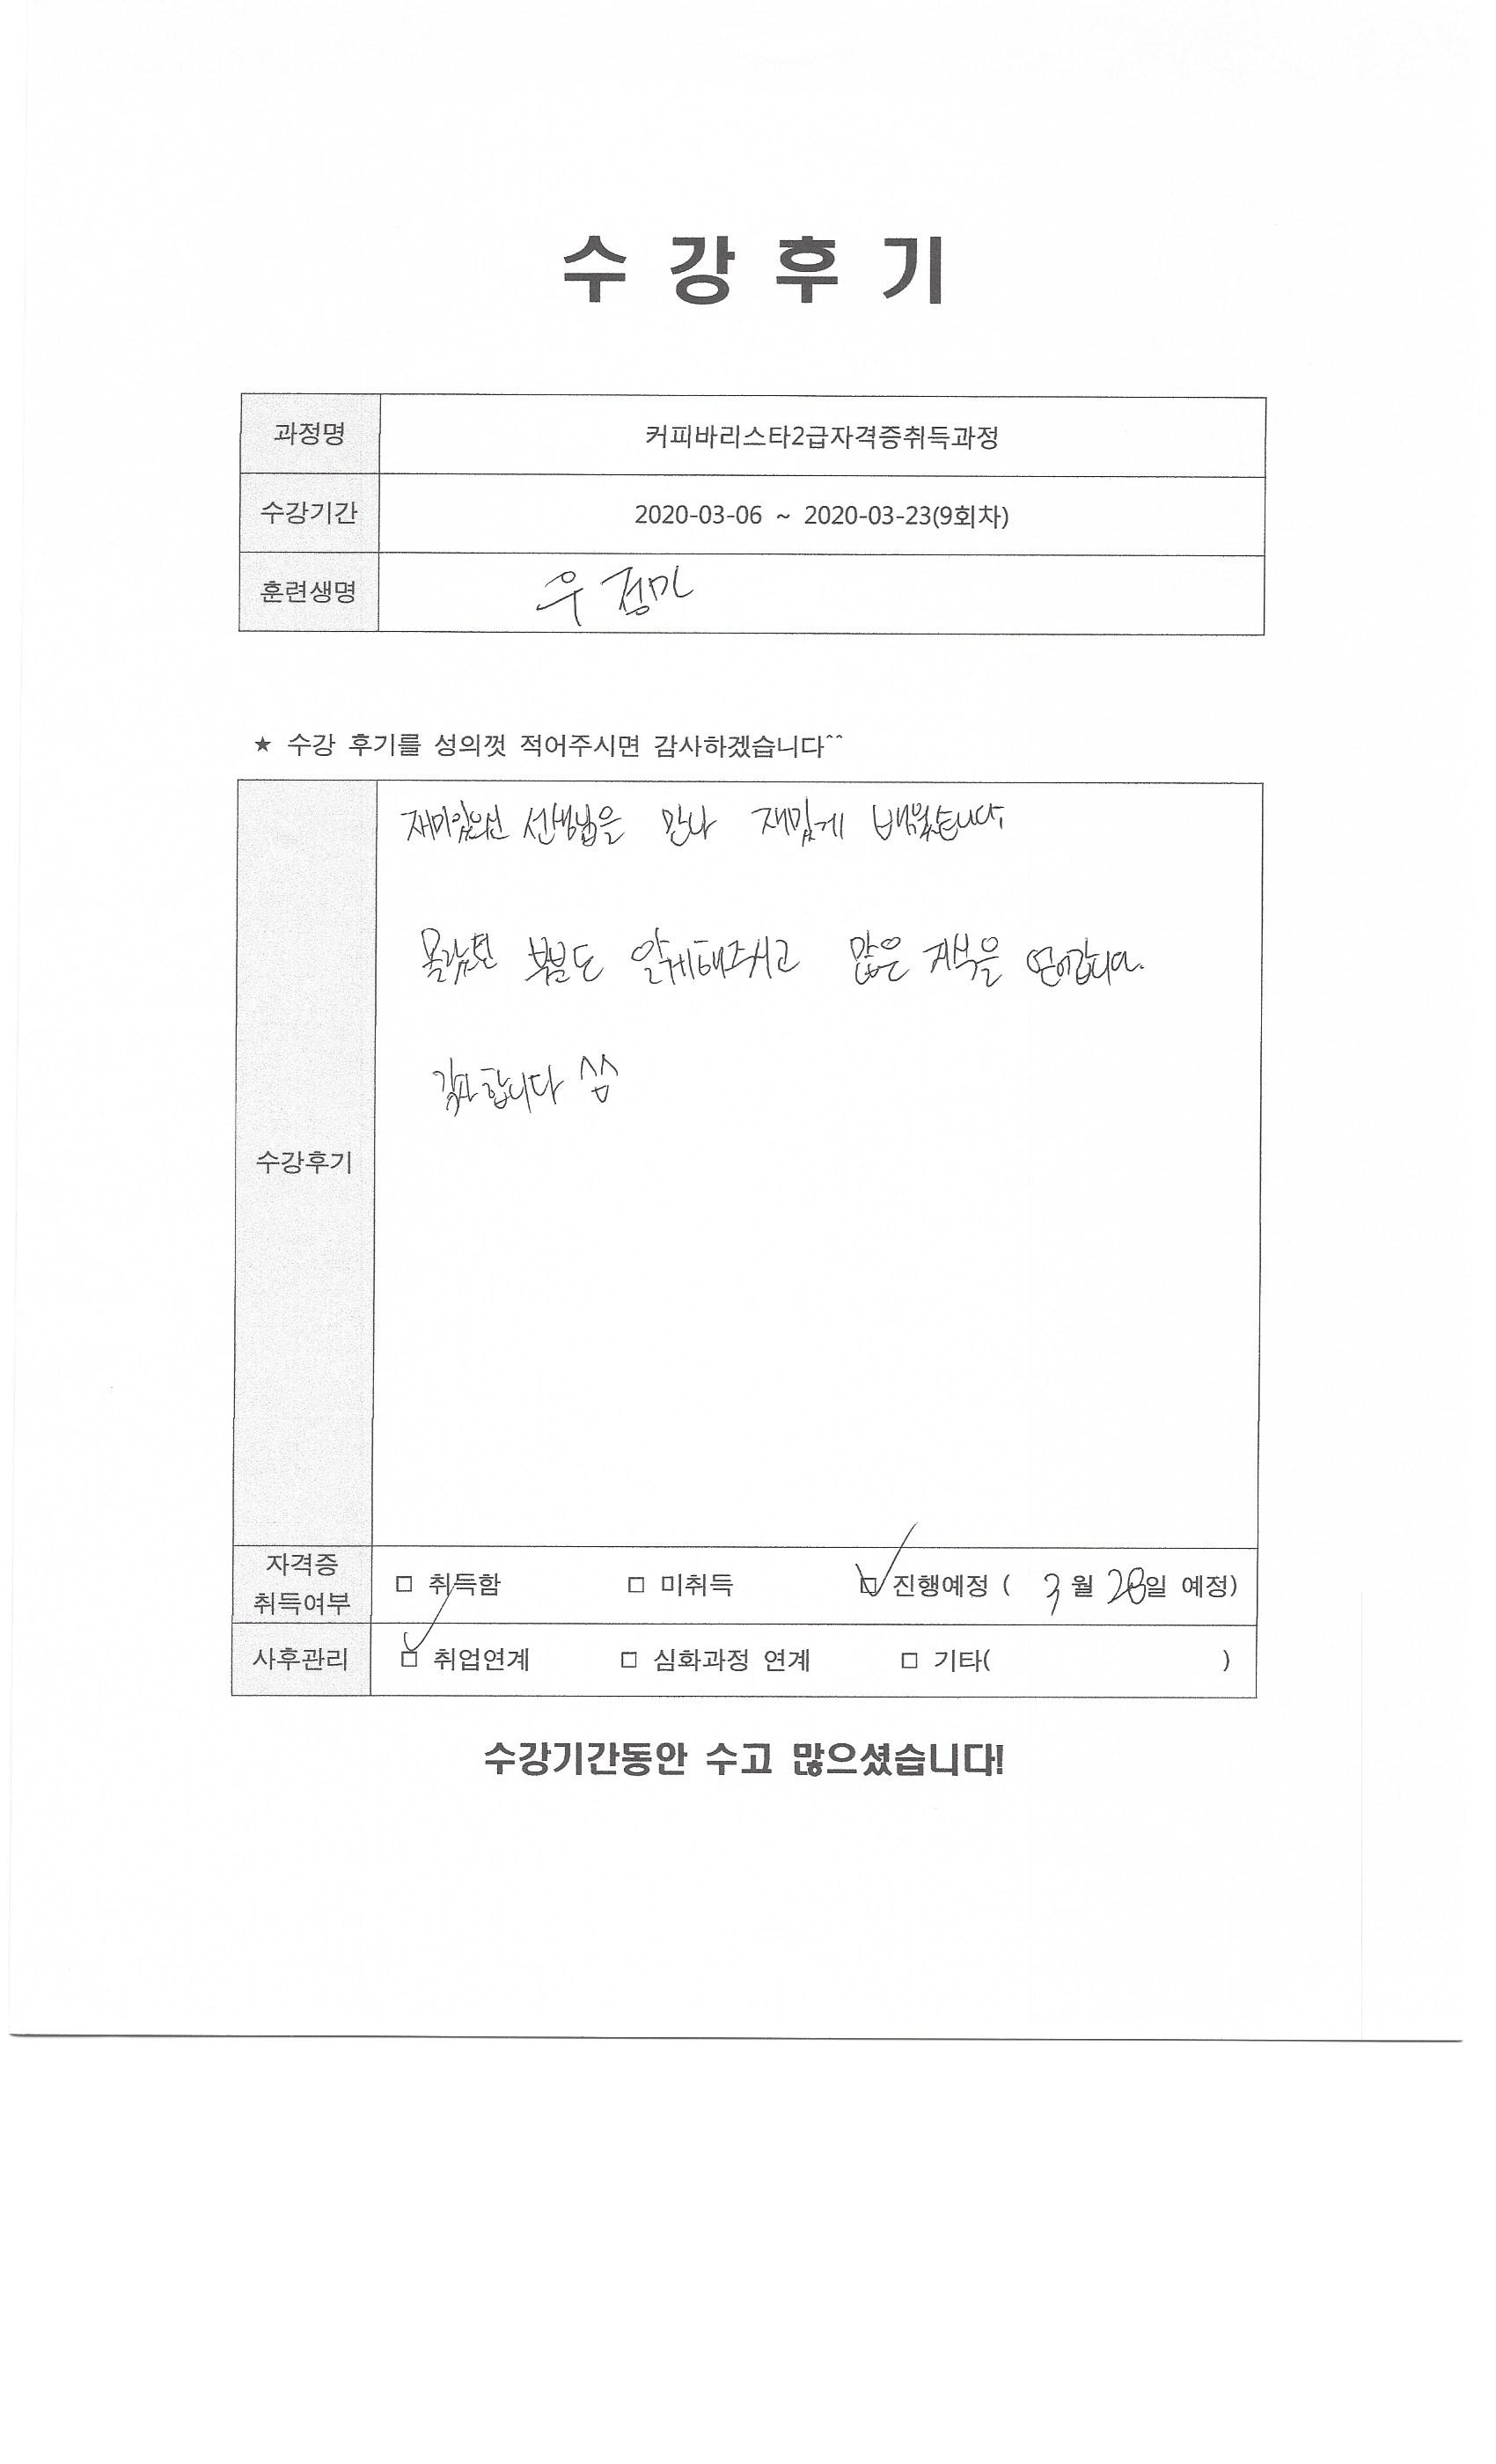 수 강 후 기
과정명 커피바리스타2급자격증취득과정
수강기간 2020-03-06 ~ 2020-03-23(9회차)
훈련생명 우정미
★ 수강 후기를 성의껏 적어주시면 감사하겠습니다^^
재미있으신 선생님을 만나 재밌게 배웠습니다.
몰랐던 부분도 알게해주시고 많은 지식을 얻어갑니다.
감사합니다 ^^
수강후기
자격증
취득여부 □ 취득함 □ 미취득 ☑ 진행예정 ( 3 월 28일 예정)
사후관리 ☑ 취업연계 □ 심화과정 연계 □ 기타( )
수강기간동안 수고 많으셨습니다!